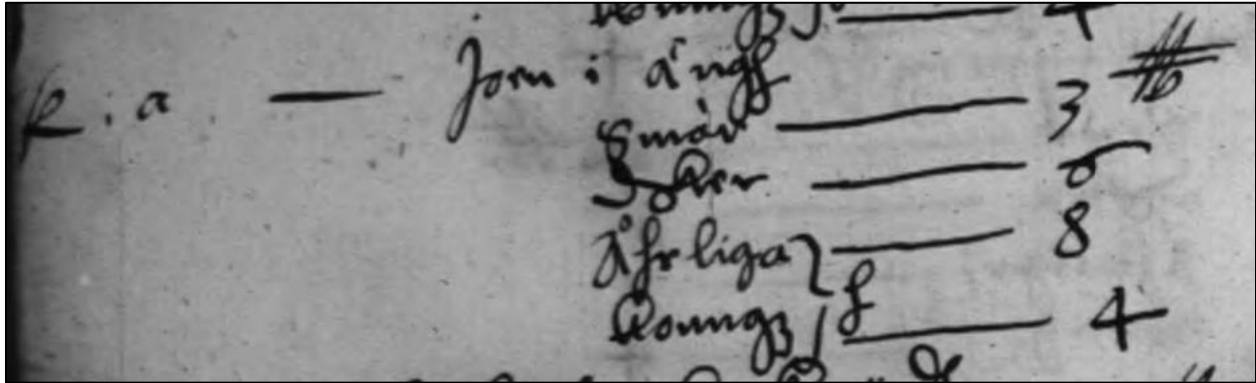 Konungz 4
R. a. — Joen i ängh
Smör — 3 ℔
— 5
Åhrliga — 8
Konungz — 4